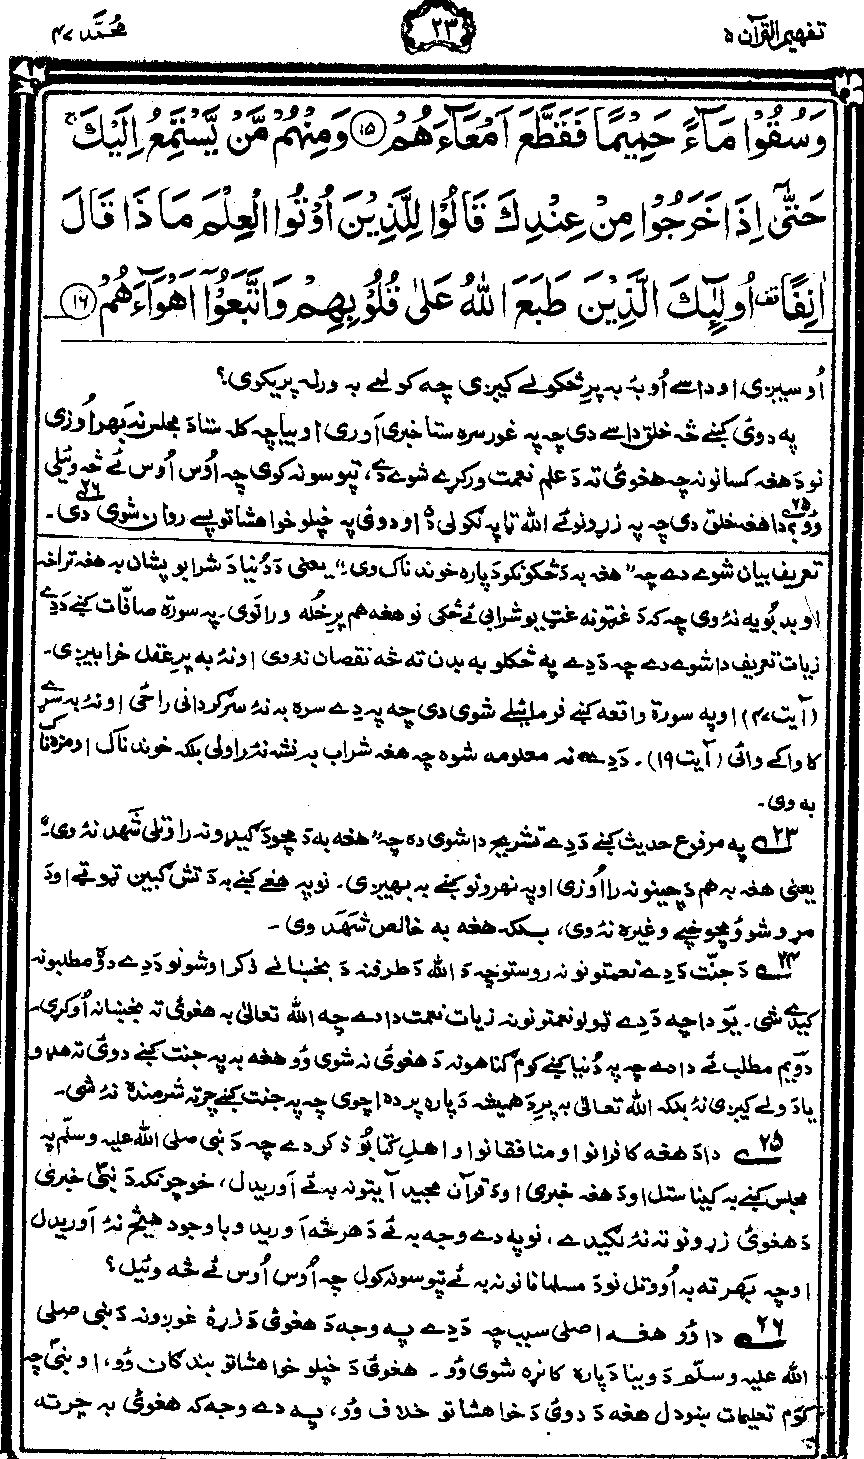 تفهیم القرآن ۵ ۲۳ مُحمَّد ۴۷
وَسُقُوْا مَآءً حَمِیْمًا فَقَطَّعَ اَمْعَآءَهُمْ ۱۵ وَمِنْهُمْ مَّنْ یَّسْتَمِعُ اِلَیْكَ ۚ
حَتّٰۤی اِذَا خَرَجُوْا مِنْ عِنْدِكَ قَالُوْا لِلَّذِیْنَ اُوْتُوا الْعِلْمَ مَا ذَا قَالَ
اٰنِفًا اُولٰٓئِكَ الَّذِیْنَ طَبَعَ اللّٰهُ عَلٰی قُلُوْبِهِمْ وَاتَّبَعُوْۤا اَهْوَآءَهُمْ ۱۶
اُو سیږی، او داسے اُوبهٔ به پرِ څکولے کیږی چه کولمے به ورله پریکوی؟
په دوئ کښے څه خلق داسے دی چه په غور سره ستا خبری آوری او بیا چه کله ستا دَ مجلس نه بهر اُوزی
نو دَ هغه کسانو نه چه هغوئ ته دَ علم نعمت ورکړے شوے دے، تپوسونه کوی چه اُوس اُوس ئے څه وئیلی
وُو؟ ۲۵ دا هغه خلق دی چه په زړونو ئے الله تاپه لګولی ده او دوئ په خپلو خواهشاتو پسے روان شوی دی ۲۶۔
تعریف بیان شوے دے چه "هغه به دَ څکونکو دَپاره خوند ناک وی"۔ یعنی دَ دُنیا دَ شرابو پشان به هغه تراخهٔ
او بد بُویه نهٔ وی چه که دَ غټو نه غټ یو شرابی ئے څکی نو هغه هم پرِ خُله وراتوی۔ په سورة صافّات کښے دَ دے
زیات تعریف دا شوے دے چه دَ دے په څکلو به بدن ته څه نقصان نهٔ وی او نهٔ به پرِ عقل خرابیږی۔
(آیت ۴۷) او په سورة واقعه کښے فرمائیلے شوی دی چه په دے سره به نهٔ سرګردانی راځی او نهٔ به سړے
کا واکے وائی (آیت ۱۹)۔ دَ دے نه معلومه شوه چه هغه شراب به نشه نهٔ راولی بلکه خوند ناک او مزه ناک
به وی۔
۲۳ په مرفوع حدیث کښے دَ دے تشریح دا شوی ده چه "هغه به دَ مچو دَ ګیډو نه را وتلی شهد نهٔ وی"
یعنی هغه به هم دَ چینو نه را اُوزی او په نهرونو کښے به بهیږی۔ نو په هغے کښے به دَ تش ګبین ټوټے او دَ
مړو شوؤ مچو خپے وغیره نهٔ وی، بلکه هغه به خالص شَهَد وی۔
۲۴ دَ جنّت دَ دے نعمتونو نه روستو چه دَ الله دَ طرفنه دَ بخښنے ذکر اوشو نو دَ دے دوهٔ مطلبونه
کیدے شی۔ یو دا چه دَ دے ټولو نعمتونو نه زیات نعمت دا دے چه الله تعالیٰ به هغوئ ته بخښنه اُوکړی۔
دوّیم مطلب ئے دا دے چه په دُنیا کښے کوم ګناهونه دَ هغوئ نه شوی وُو هغه به په جنت کښے دوئ ته هډو
یاد ولے کیږی نهٔ بلکه الله تعالیٰ به پرِ دَ همیشه دَپاره پرده اچوی چه په جنت کښے چرته شرمنده نهٔ شی۔
۲۵ دا دَ هغه کافرانو او منافقانو او اهلِ کتابو ذکر دے چه دَ نبی صلی الله علیه وسلّم په
مجلس کښے به کیناستل او دَ هغه خبری او دَ قرآن مجید آیتونه به ئے آوریدل، خو چونکه دَ نبیؐ خبری
دَ هغوئ زړونو ته نهٔ لګیدے، نو په دے وجه به ئے دَ هر څه آوریدو باوجود هیڅ نهٔ آوریدل
او چه بهر ته به اُووتل نو دَ مسلمانانو نه به ئے تپوسونه کول چه اُوس اُوس ئے څه وئیل؟
۲۶ دا وُو هغه اصلی سبب چه دَ دے په وجه دَ هغوئ دَ زړهٔ غوږونه دَ نبی صلی
الله علیه وسلّم دَ وینا دَپاره کانړه شوی وُو۔ هغوئ دَ خپلو خواهشاتو بندګان وُو، او نبیؐ چه
کوم تعلیمات ښودل هغه دَ دوئ دَ خواهشاتو خلاف وُو، په دے وجه که هغوئ به چرته